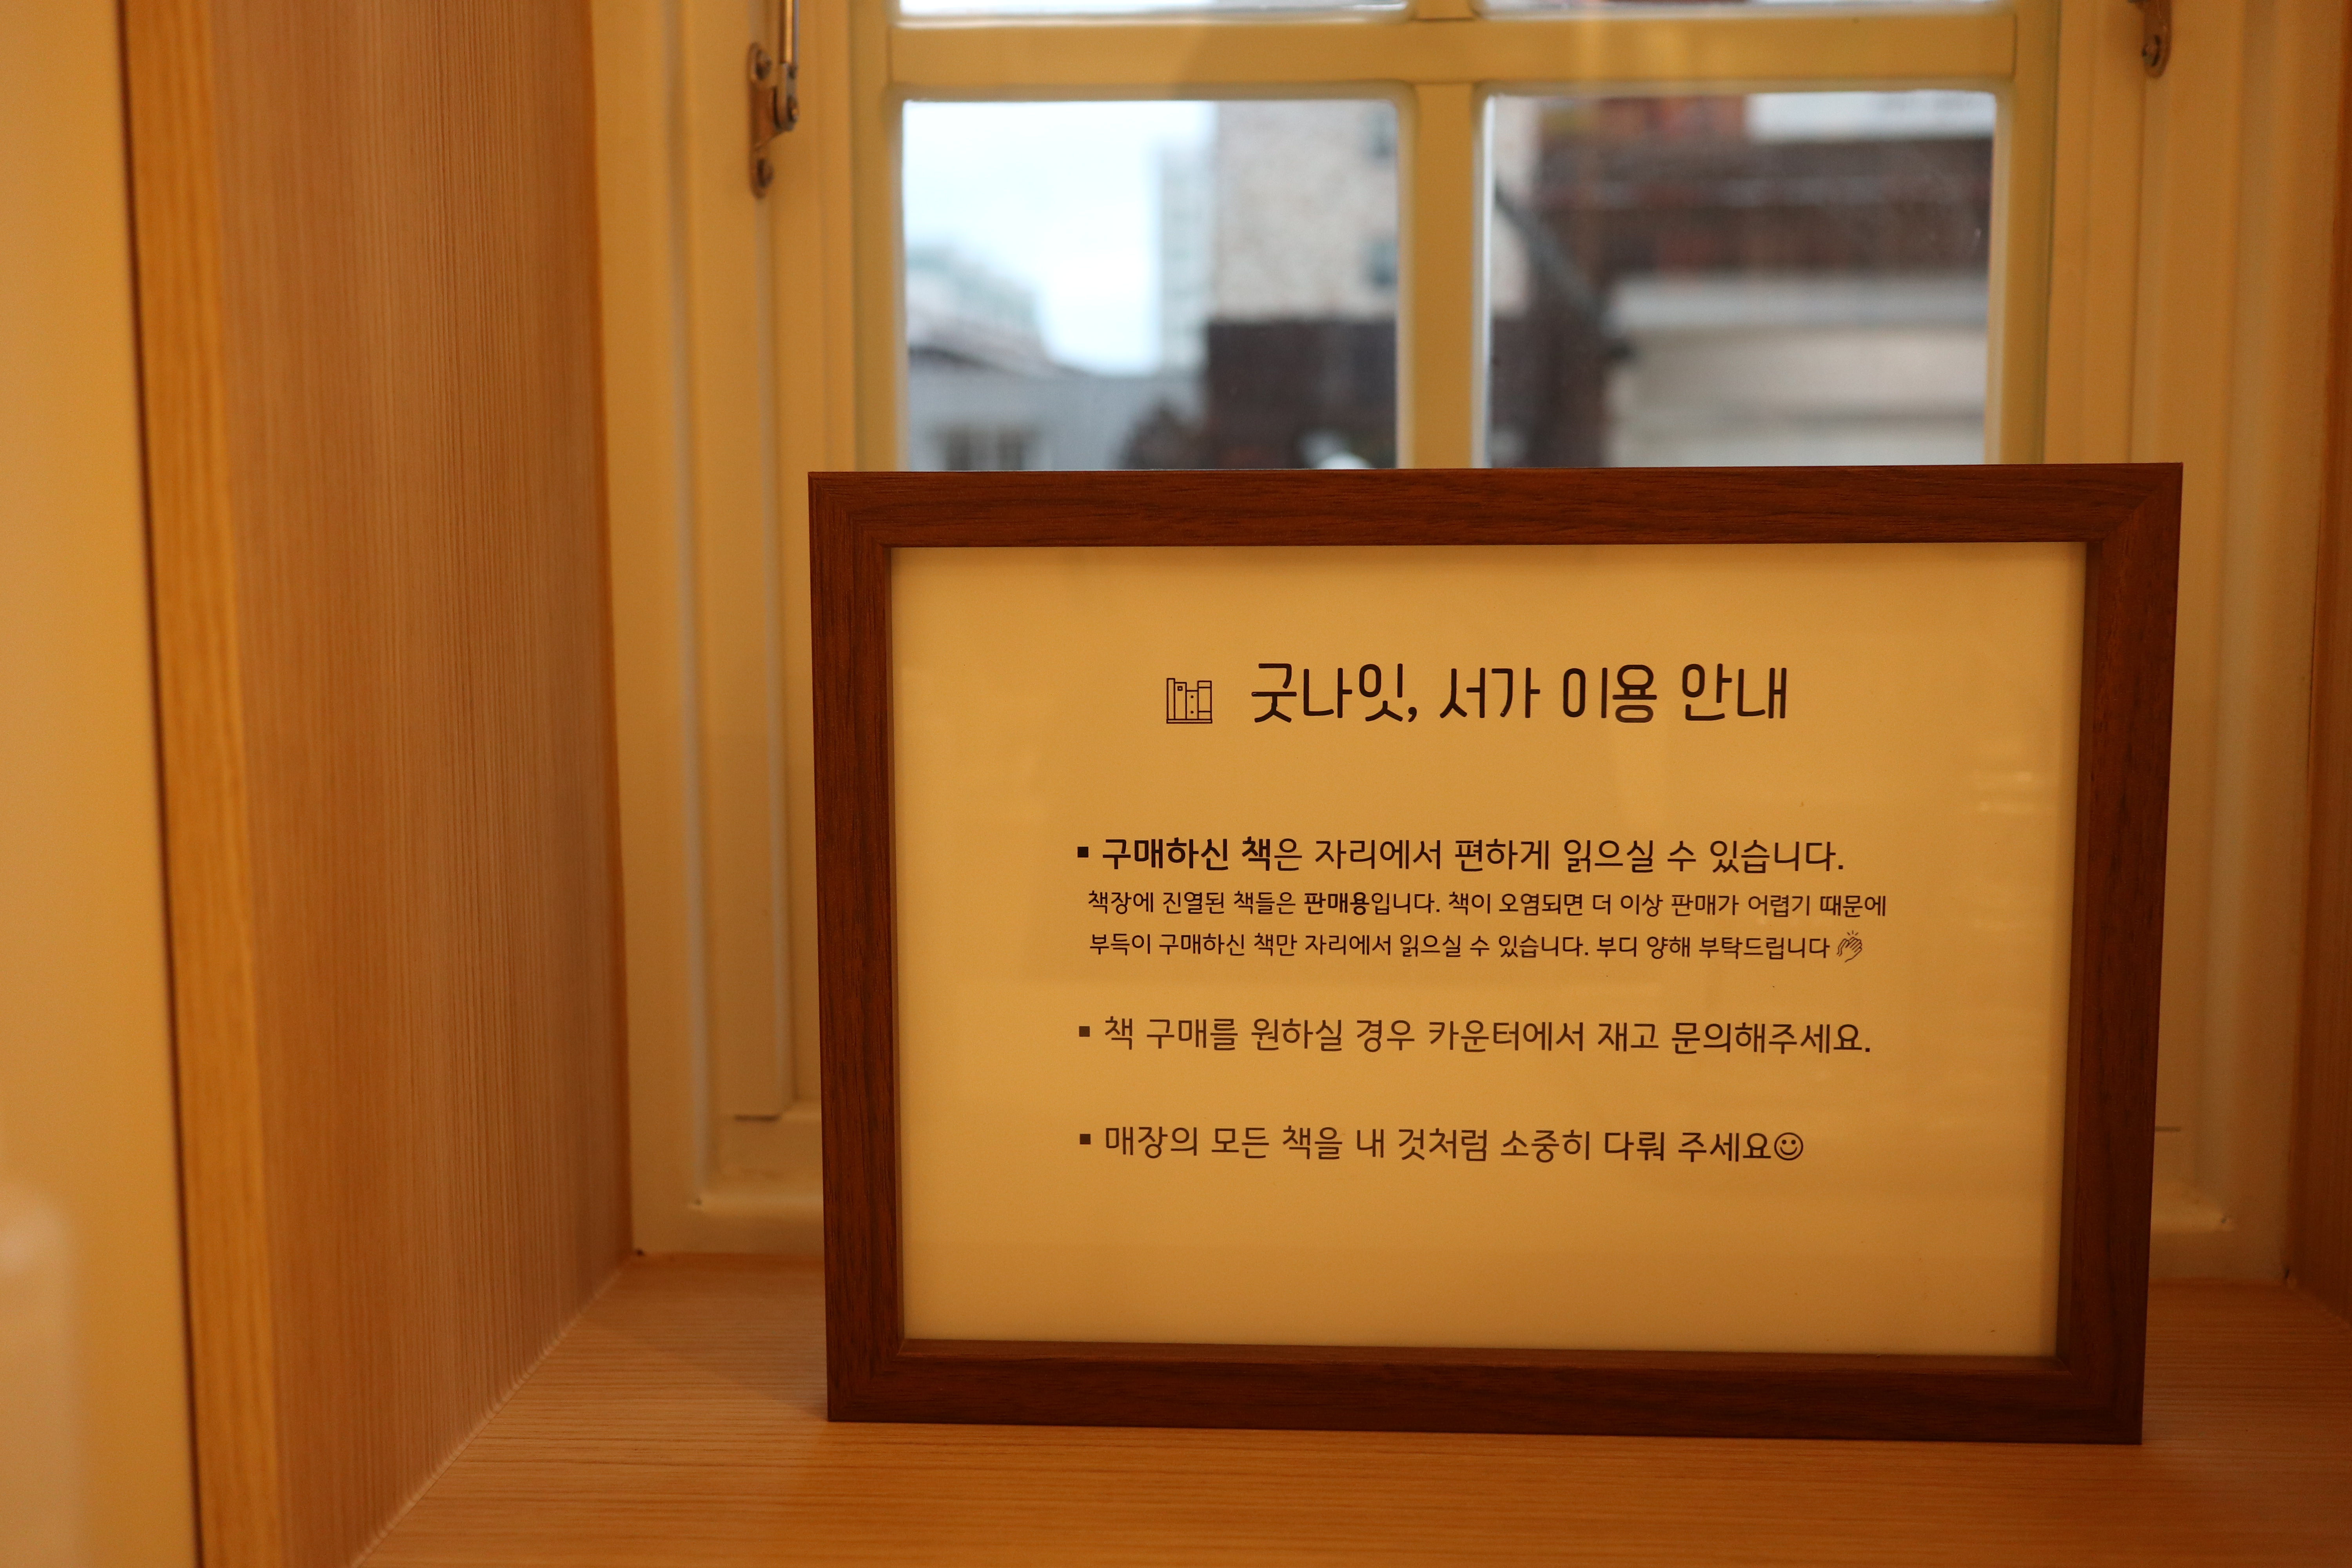 굿나잇, 서가 이용 안내
▪ 구매하신 책은 자리에서 편하게 읽으실 수 있습니다.
책장에 진열된 책들은 판매용입니다. 책이 오염되면 더 이상 판매가 어렵기 때문에
부득이 구매하신 책만 자리에서 읽으실 수 있습니다. 부디 양해 부탁드립니다
▪ 책 구매를 원하실 경우 카운터에서 재고 문의해주세요.
▪ 매장의 모든 책을 내 것처럼 소중히 다뤄 주세요☺